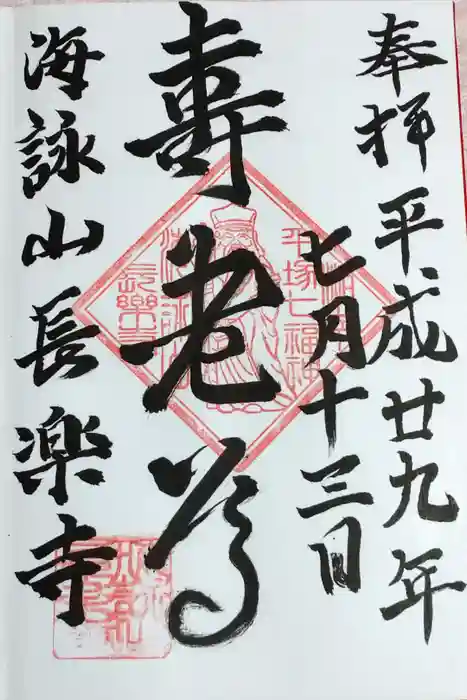 奉拝 平成廿九年
七月十三日
壽老尊
海詠山長楽寺
平塚七福神
長樂寺